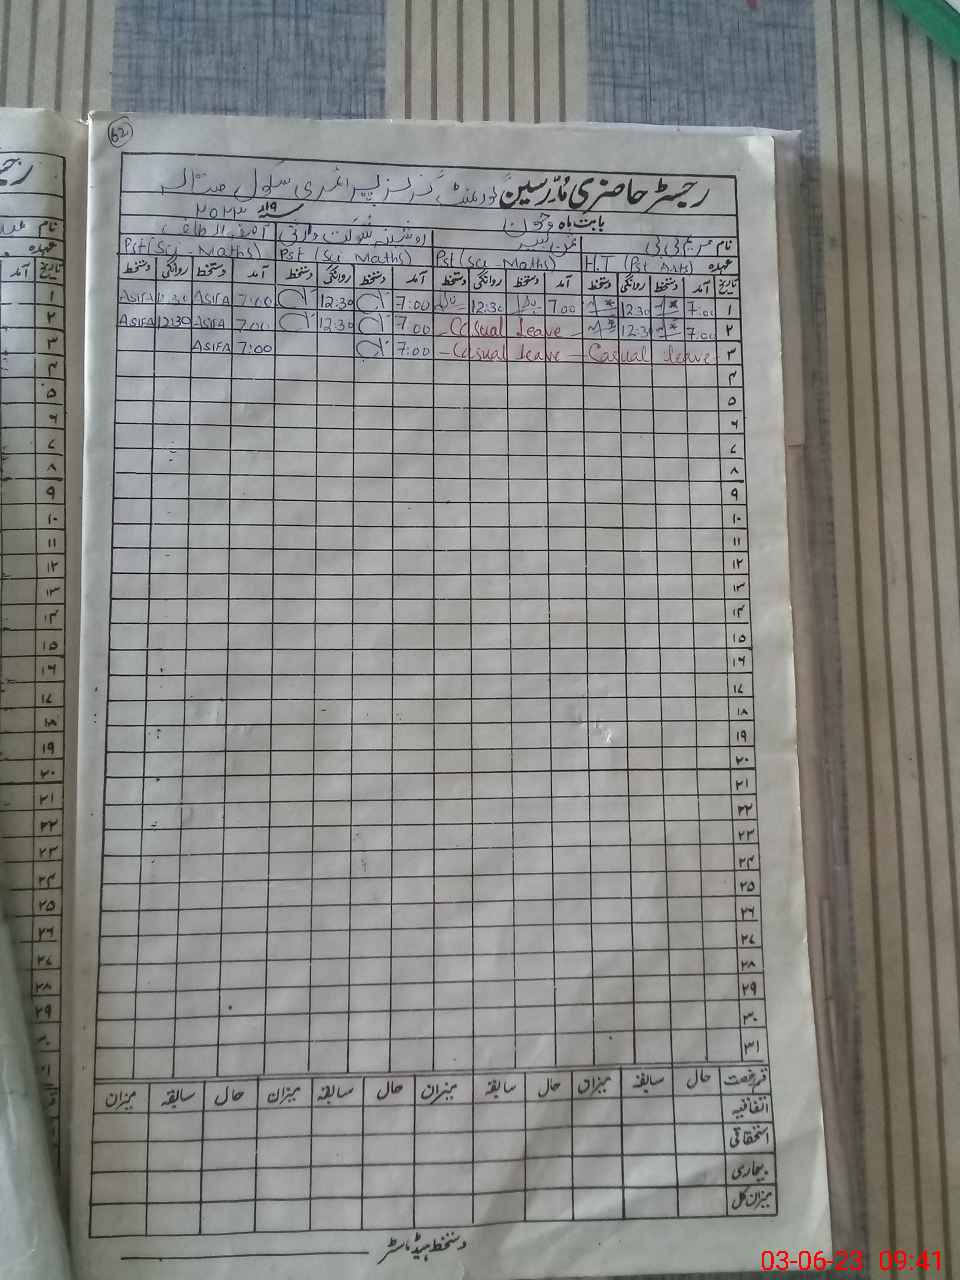 62
رجسٹر حاضری مُدرسین گورنمنٹ گرلز پرائمری سکول
بابت ماہ جون ۲۰۲۳
نام
عہدہ H.T (Pst Arts) Pst (Sci Maths) Pst (Sci Maths) Pst (Sci Maths)
تاریخ آمد دستخط روانگی دستخط آمد دستخط روانگی دستخط آمد دستخط روانگی دستخط آمد دستخط روانگی دستخط
۱ 7:00 12:30 7:00 12:30 7:00 12:30 7:00 ASIFA 12:30 ASIFA
۲ 7:00 12:30 Casual leave 7:00 12:30 7:00 ASIFA 12:30 ASIFA
۳ Casual leave Casual leave 7:00 7:00 ASIFA
۴
۵
۶
۷
۸
۹
۱۰
۱۱
۱۲
۱۳
۱۴
۱۵
۱۶
۱۷
۱۸
۱۹
۲۰
۲۱
۲۲
۲۳
۲۴
۲۵
۲۶
۲۷
۲۸
۲۹
۳۰
۳۱
قسم رخصت حال سابقہ میزان حال سابقہ میزان حال سابقہ میزان حال سابقہ میزان
اتفاقیہ
استحقاقی
بیماری
میزان کل
دستخط ہیڈ ماسٹر
03-06-23 09:41